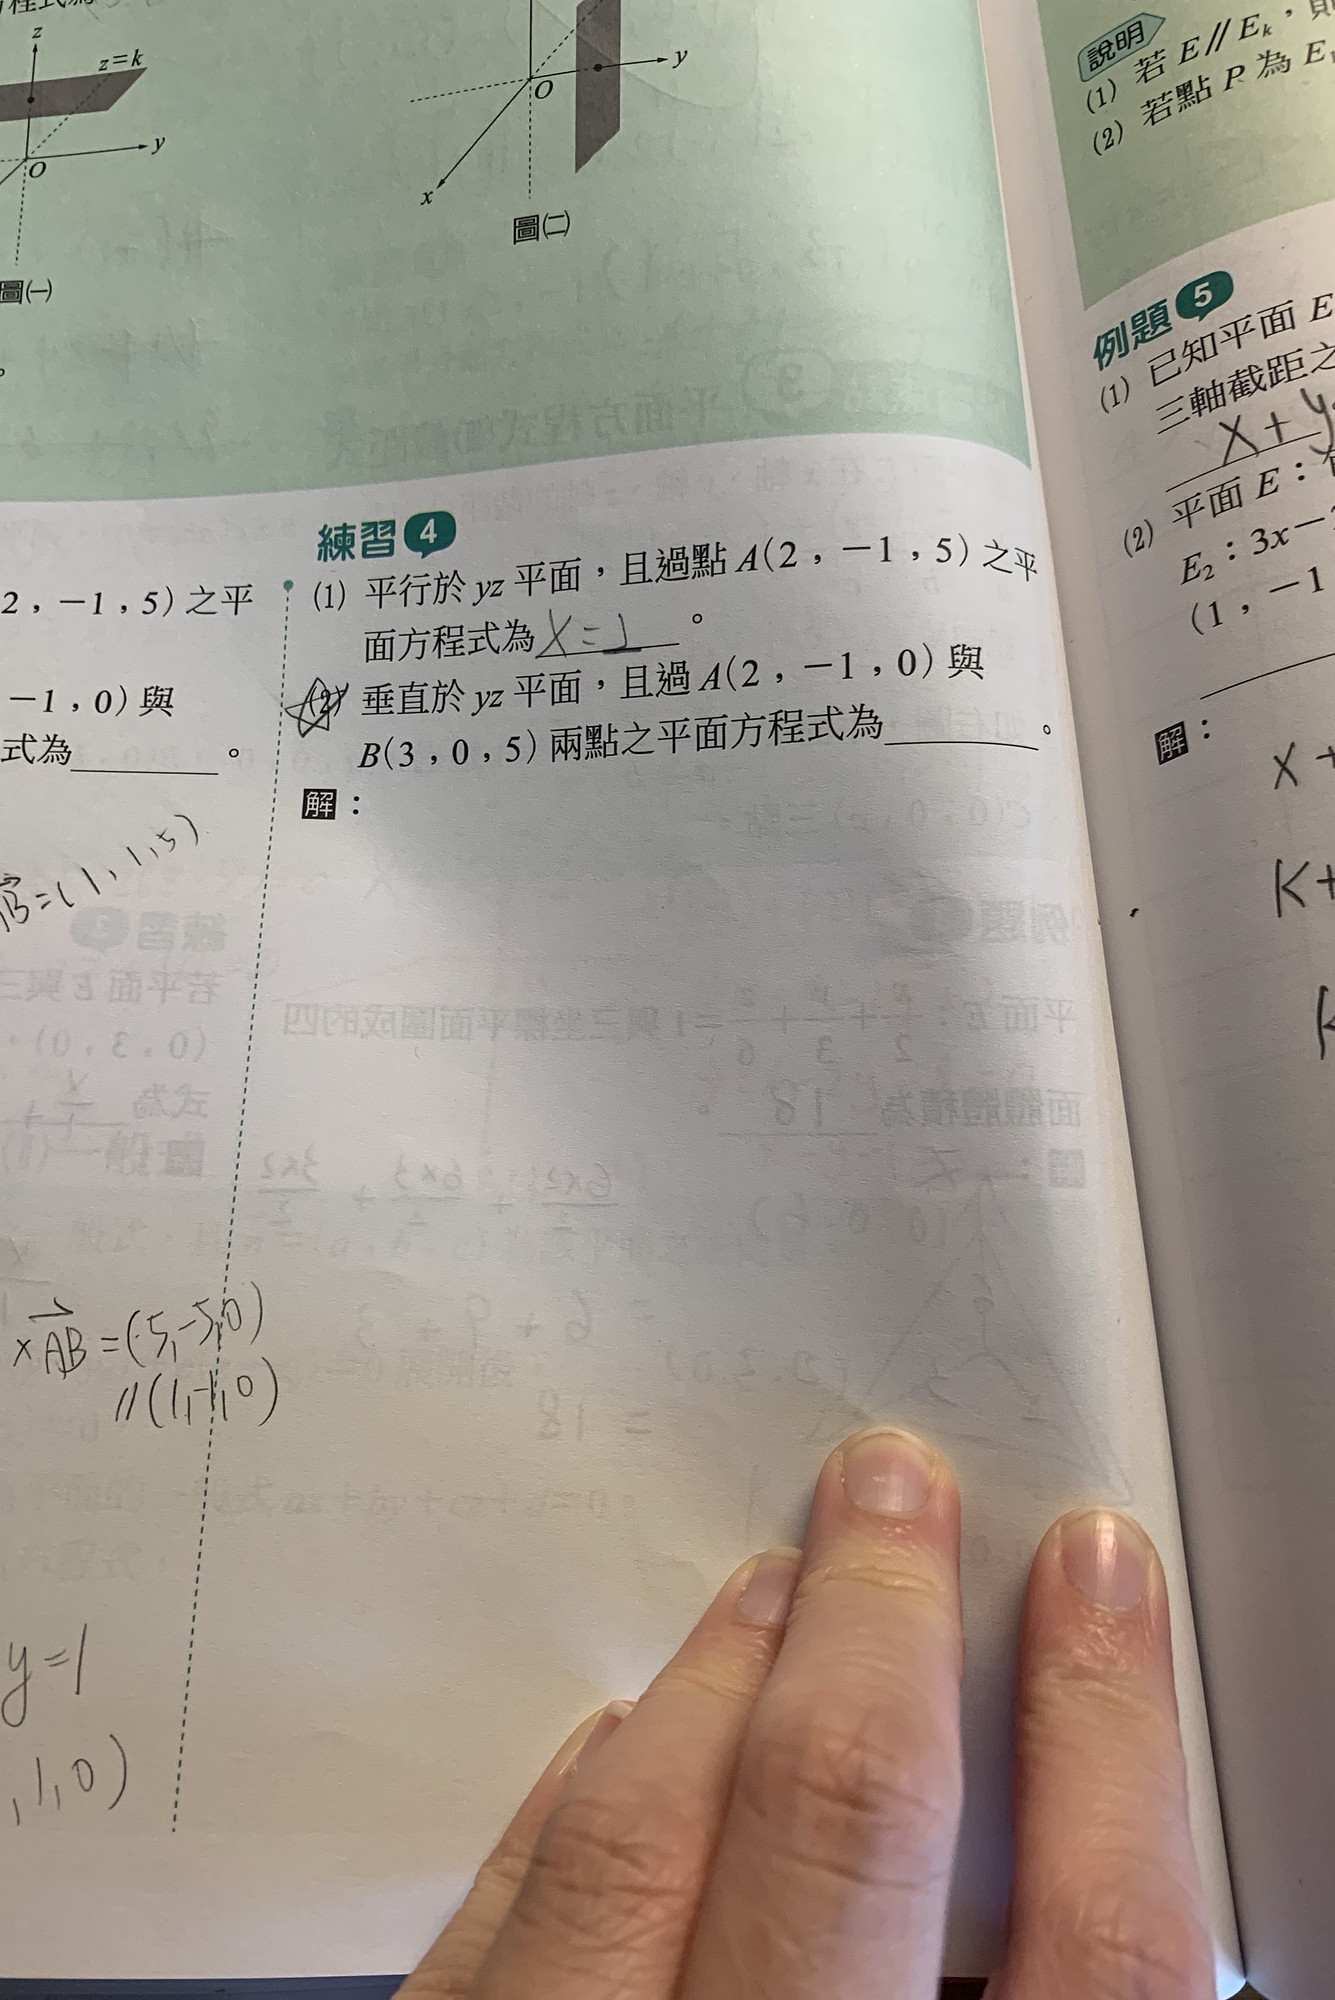 z
z=k
y
O
圖㈠
y
O
x
圖㈡
。
2，−1，5）之平
−1，0）與
式為 。
B=(1,1,5)
×AB=(-5,-5,0)
//(1,-1,0)
y=1
,1,0)
練習 4
(1) 平行於 yz 平面，且過點 A（2，−1，5）之平
面方程式為 x=2 。
(2) 垂直於 yz 平面，且過 A（2，−1，0）與
B（3，0，5）兩點之平面方程式為 。
解：
說明
(1) 若 E // Ek，則
(2) 若點 P 為 E
例題 5
(1) 已知平面 E
三軸截距之
x+y
(2) 平面 E：
E2：3x−
（1，−1
解：
x+
k+
k